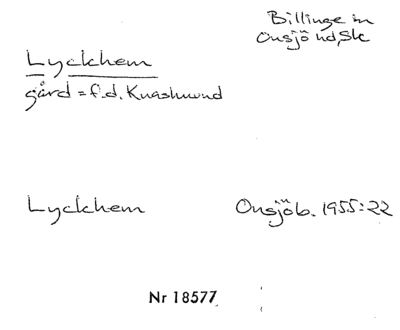 Billinge sn
Onsjö hd, Sk
Lyckhem
gård = f.d. Knashmund
Lyckhem Onsjöb. 1955:22
Nr 18577